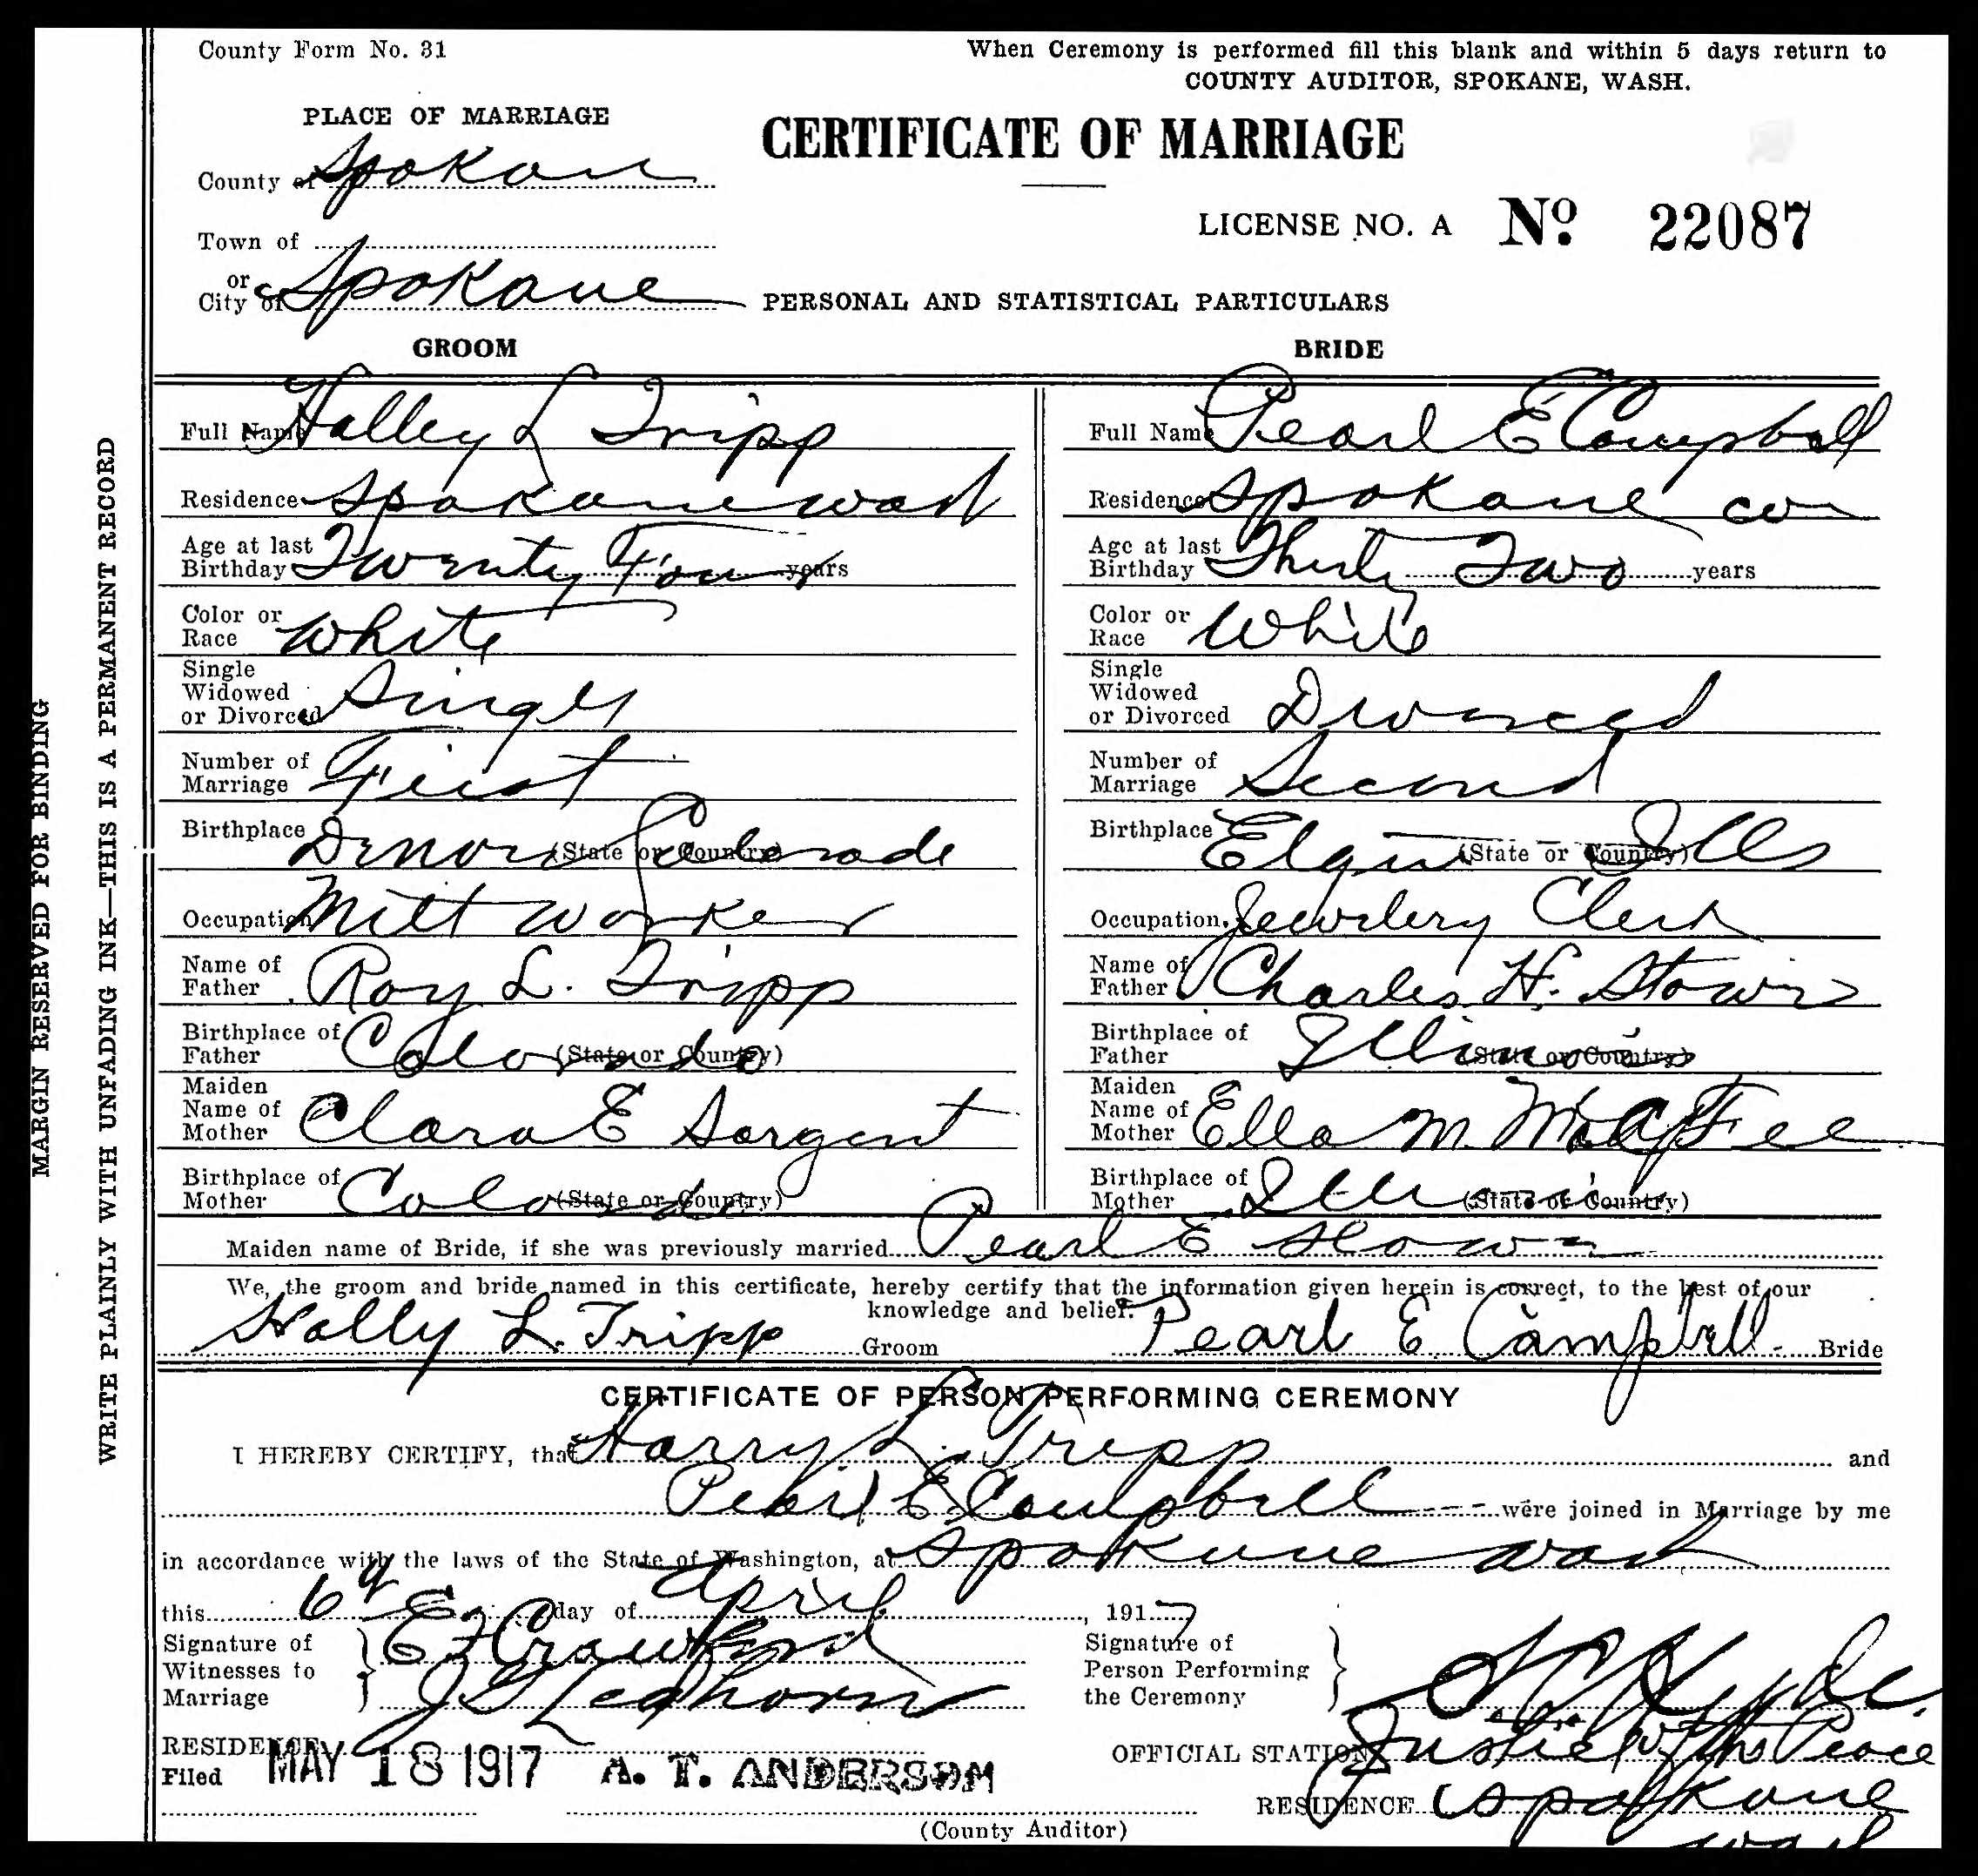 County Form No. 31
When Ceremony is performed fill this blank and within 5 days return to
COUNTY AUDITOR, SPOKANE, WASH.
PLACE OF MARRIAGE
CERTIFICATE OF MARRIAGE
County of Spokan
LICENSE NO. A No. 22087
Town of
or
City of Spokane
PERSONAL AND STATISTICAL PARTICULARS
GROOM
Full Name Halley L Tripp
Residence Spokane Wash
Age at last Birthday Twenty Four years
Color or Race White
Single Widowed or Divorced Single
Number of Marriage First
Birthplace Denver Colorado (State or Country)
Occupation Mill Worker
Name of Father Roy L. Tripp
Birthplace of Father Colorado (State or Country)
Maiden Name of Mother Clara E Sargent
Birthplace of Mother Colorado (State or Country)
BRIDE
Full Name Pearl E Campbell
Residence Spokane Co
Age at last Birthday Thirty Two years
Color or Race White
Single Widowed or Divorced Divorced
Number of Marriage Second
Birthplace Elgin Ills (State or Country)
Occupation Jewelery Clerk
Name of Father Charles H.
Birthplace of Father Illinois (State or Country)
Maiden Name of Mother Ella M.
Birthplace of Mother Illinois (State or Country)
Maiden name of Bride, if she was previously married Pearl E
We, the groom and bride named in this certificate, hereby certify that the information given herein is correct, to the best of our
knowledge and belief.
Holly L. Tripp Groom Pearl E. Campbell Bride
CERTIFICATE OF PERSON PERFORMING CEREMONY
I HEREBY CERTIFY, that Harry L. Tripp and
Pearl E Campbell were joined in Marriage by me
in accordance with the laws of the State of Washington, at Spokane Wash
this 6th day of April, 1917
Signature of Witnesses to Marriage
E Crawford
J Leghorn
Signature of Person Performing the Ceremony
Hyde
RESIDENCE
OFFICIAL STATION Justice of the Peace
Filed MAY 18 1917 A. T. ANDERSON
RESIDENCE Spokane
Wash
(County Auditor)
MARGIN RESERVED FOR BINDING
WRITE PLAINLY WITH UNFADING INK—THIS IS A PERMANENT RECORD